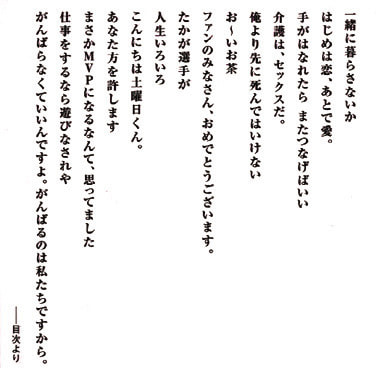 一緒に暮らさないか
はじめは恋、あとで愛。
手がはなれたら またつなげばいい
介護は、セックスだ。
俺より先に死んではいけない
お〜いお茶
ファンのみなさん、おめでとうございます。
たかが選手が
人生いろいろ
こんにちは土曜日くん。
あなた方を許します
まさかMVPになるなんて、思ってました
仕事をするなら遊びなされや
がんばらなくていいんですよ。がんばるのは私たちですから。
——目次より